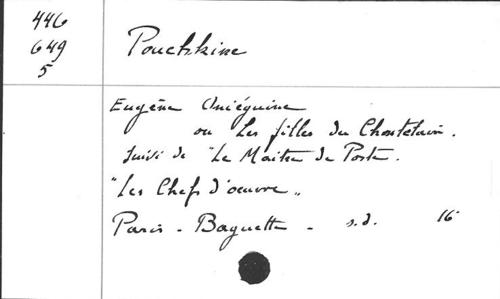 446
649
5
Pouchkine
Eugène Oniéguine
ou Les filles du Chatelain.
suivi de "Le Maitre de Poste.
"Les Chefs d'oeuvre"
Paris - Baguette - s.d. 16